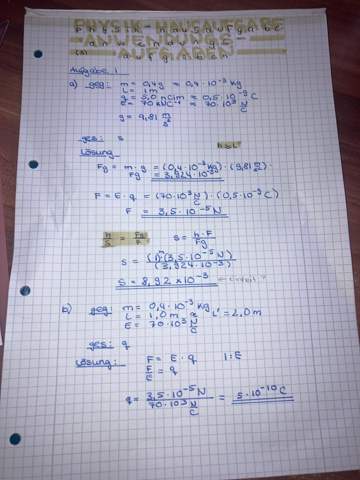 PHYSIK-HAUSAUFGABE
ANWENDUNGS-
AUFGABEN
Aufgabe 1
a) geg: m = 0,4g = 0,4·10⁻³ kg
L = 1m
= 0,5·10⁻⁹ C
= 70·10³ N/C
g = 9,81 m/s²
ges: s
Lösung
Fg = m·g = (0,4·10⁻³kg)·(9,81 m/s²)
Fg = 3,924·10⁻³
F = E·q = (70·10³ N/C)·(0,5·10⁻⁹C)
F = 3,5·10⁻⁵N
h/s = Fg/F s = h·F/Fg
s = (1)·(3,5·10⁻⁵N)/(3,924·10⁻³)
s = 8,92 × 10⁻³
b) geg: m = 0,4·10⁻³kg
L = 1,0m L' = 2,0m
E = 70·10³ N/C
ges: q
Lösung: F = E·q |:E
F/E = q
q = 3,5·10⁻⁵N/70·10³ N/C = 5·10⁻¹⁰C